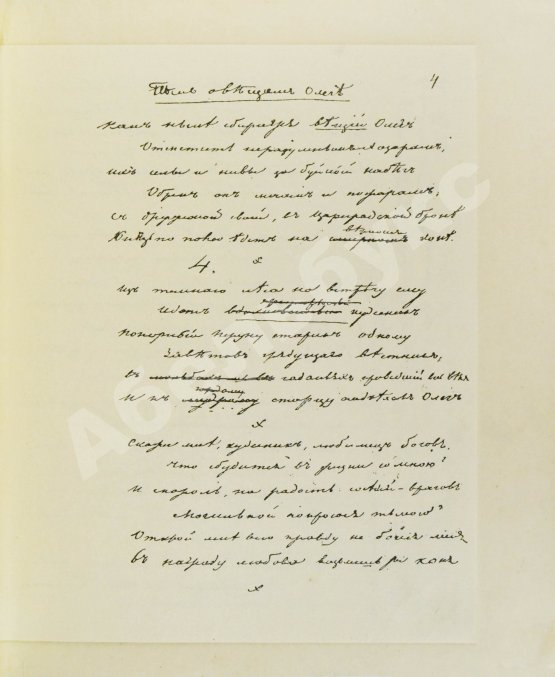 4
Пѣснь о вѣщемъ Олегѣ
Какъ нынѣ сбирается вѣщій Олегъ
Отмстить неразумнымъ Хозарамъ;
Ихъ селы и нивы за буйной набѣгъ
Обрекъ онъ мечамъ и пожарамъ;
Съ дружиной своей, въ цареградской бронѣ
вѣрномъ
Князь по полю ѣдетъ на смирномъ конѣ.
4.
Изъ темнаго лѣса на встрѣчу ему
Идетъ кудесникъ
Покорный Перуну старикъ одному
Завѣтовъ грядущаго вѣстникъ,
Въ мольбахъ и въ гаданьяхъ проведшій весь вѣкъ
мудрому
И къ старцу подъѣхалъ Олегъ
Скажи мнѣ, кудесникъ, любимецъ боговъ,
Что сбудется въ жизни со мною?
И скороль, на радость сосѣдей-враговъ
Могильной засыплюсь землею?
Открой мнѣ всю правду не бойся меня
Въ награду любова возьмешь ты коня